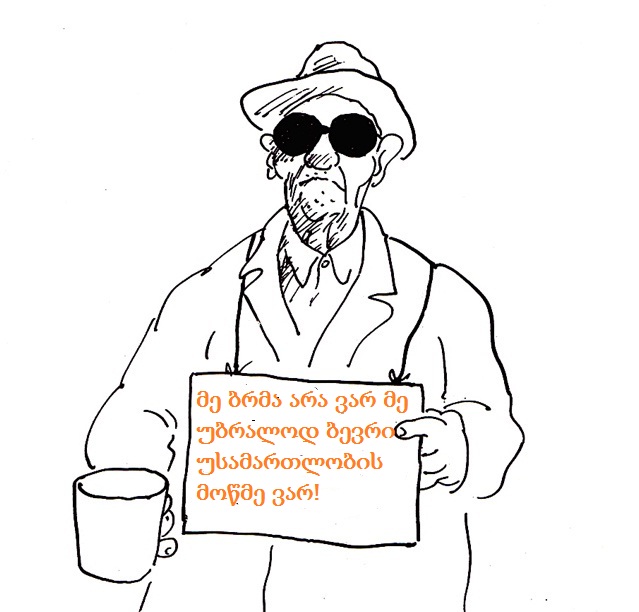 მე ბრმა არა ვარ მე
უბრალოდ ბევრი
უსამართლობის
მოწმე ვარ!